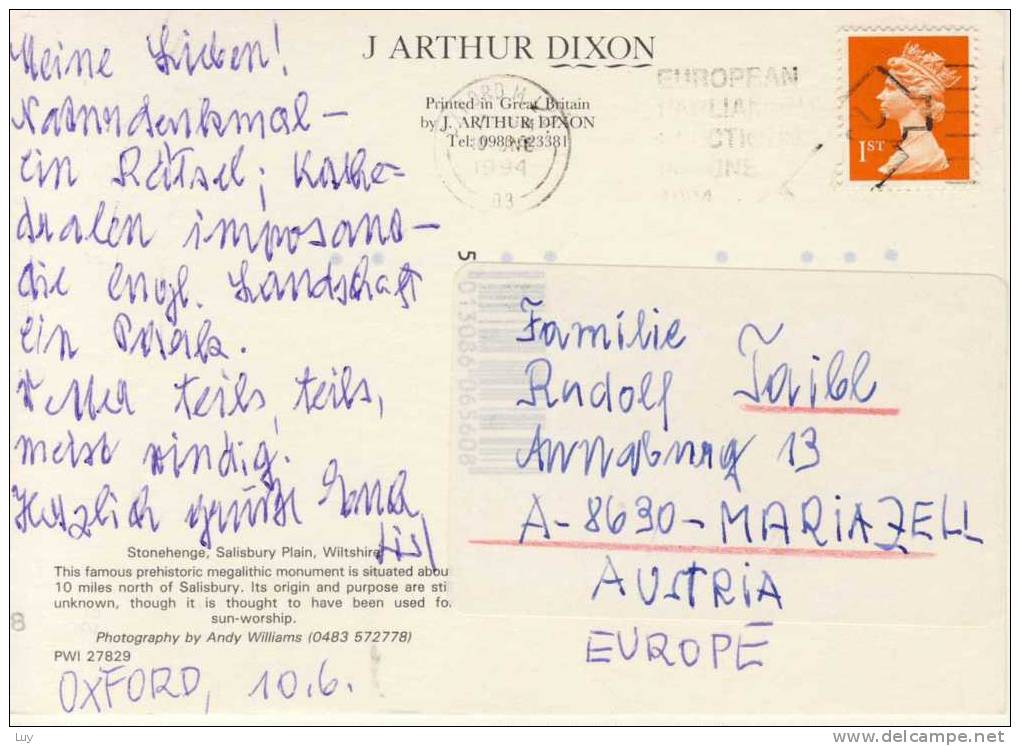 Meine Lieben!
Naturdenkmal -
ein Rätsel; Kathe-
dralen imposant -
die engl. Landschaft
ein Park.
Wetter teils, teils,
meist windig!
Herzlich grüßt Euch
Lisl
J ARTHUR DIXON
Printed in Great Britain
by J. ARTHUR DIXON
Tel: 0983 523381
EUROPEAN
1994
03
1ST
5
01308606 065608
Familie
Rudolf Taibl
Annaburg 13
A-8630-MARIAZELL
AUSTRIA
EUROPE
Stonehenge, Salisbury Plain, Wiltshire
This famous prehistoric megalithic monument is situated abou
10 miles north of Salisbury. Its origin and purpose are sti
unknown, though it is thought to have been used fo
sun-worship.
Photography by Andy Williams (0483 572778)
PWI 27829
8
OXFORD, 10.6.
Luy
http://www.delcampe.net